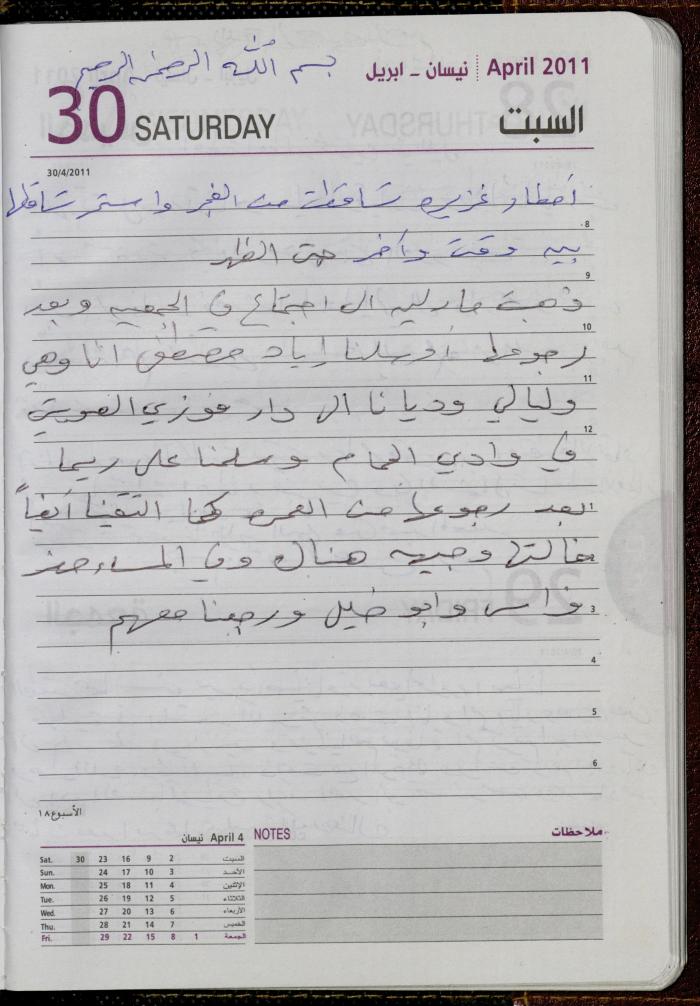 بسم الله الرحمن الرحيم
April 2011 نيسان ـ ابريل
30 SATURDAY السبت
30/4/2011
أمطار غزيره تساقطت من الفجر واستمر تساقطها
8
بين وقت وآخر حتى الظهر
9
ذهبت مادلين الى اجتماع في الجمعيه وبعد
10
رجوعها أوصلنا إياد مصطفى انا وهي
11
وليالي وديانا الى دار فوزي
12
في وادي الحمام وسلمنا على ريما
بعد رجوعها من العمره كما التقينا ايضاً
خالتها وجيه هناك وفي المساء حضر
3
فراس وابو خليل ورجعنا معهم
4
5
6
الأسبوع ١٨
April 4 نيسان
Sat. 30 23 16 9 2 السبت
Sun. 24 17 10 3 الأحد
Mon. 25 18 11 4 الإثنين
Tue. 26 19 12 5 الثلاثاء
Wed. 27 20 13 6 الأربعاء
Thu. 28 21 14 7 الخميس
Fri. 29 22 15 8 1 الجمعة
NOTES ملاحظات